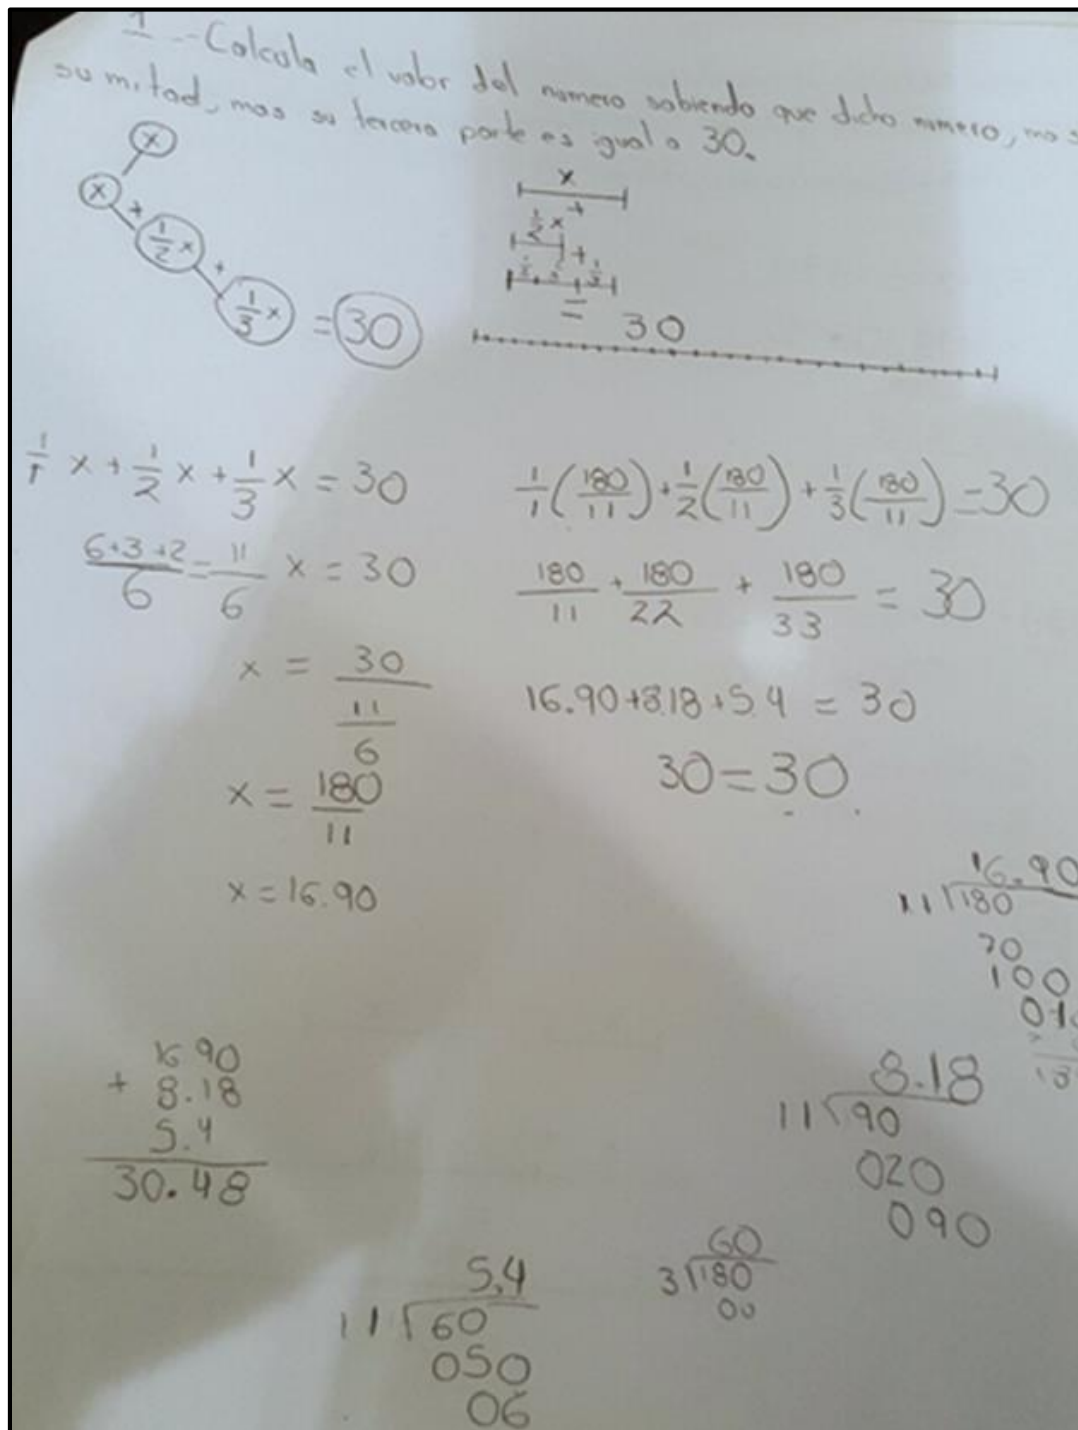 1.- Calcula el valor del numero sabiendo que dicho numero, mas
su mitad, mas su tercera parte es igual a 30.
x
x + 1/2 x + 1/3 x = 30
x
+
1/2 x
+
1/3
= 30
1/1 x + 1/2 x + 1/3 x = 30
6+3+2/6 = 11/6 x = 30
x = 30/(11/6)
x = 180/11
x = 16.90
1/1 (180/11) + 1/2 (180/11) + 1/3 (180/11) = 30
180/11 + 180/22 + 180/33 = 30
16.90+8.18+5.4 = 30
30 = 30
16.90
11 180
70
100
01
16 90
+ 8.18
5.4
30.48
8.18
11 90
020
090
5.4
11 60
050
06
60
3 180
00